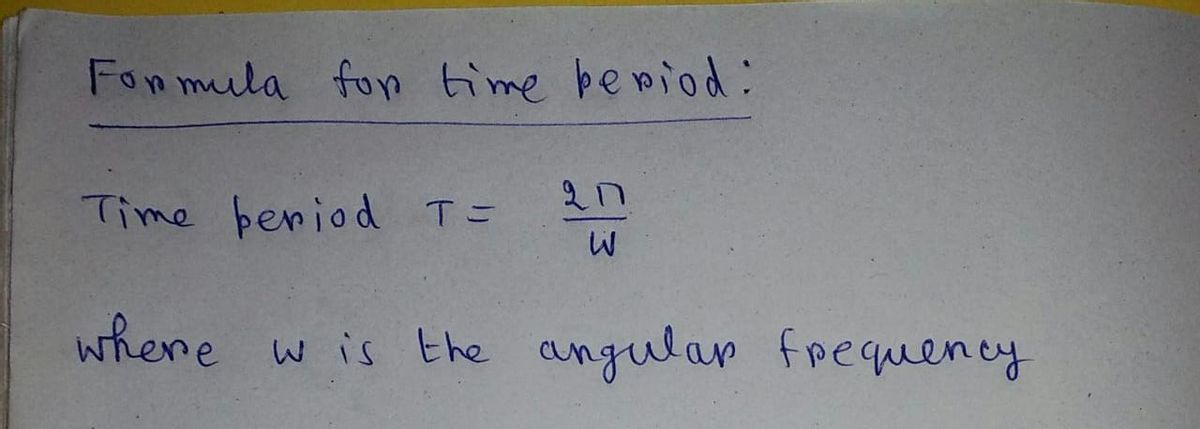 Formula for time period:
Time period T = 2π/w
where w is the angular frequency